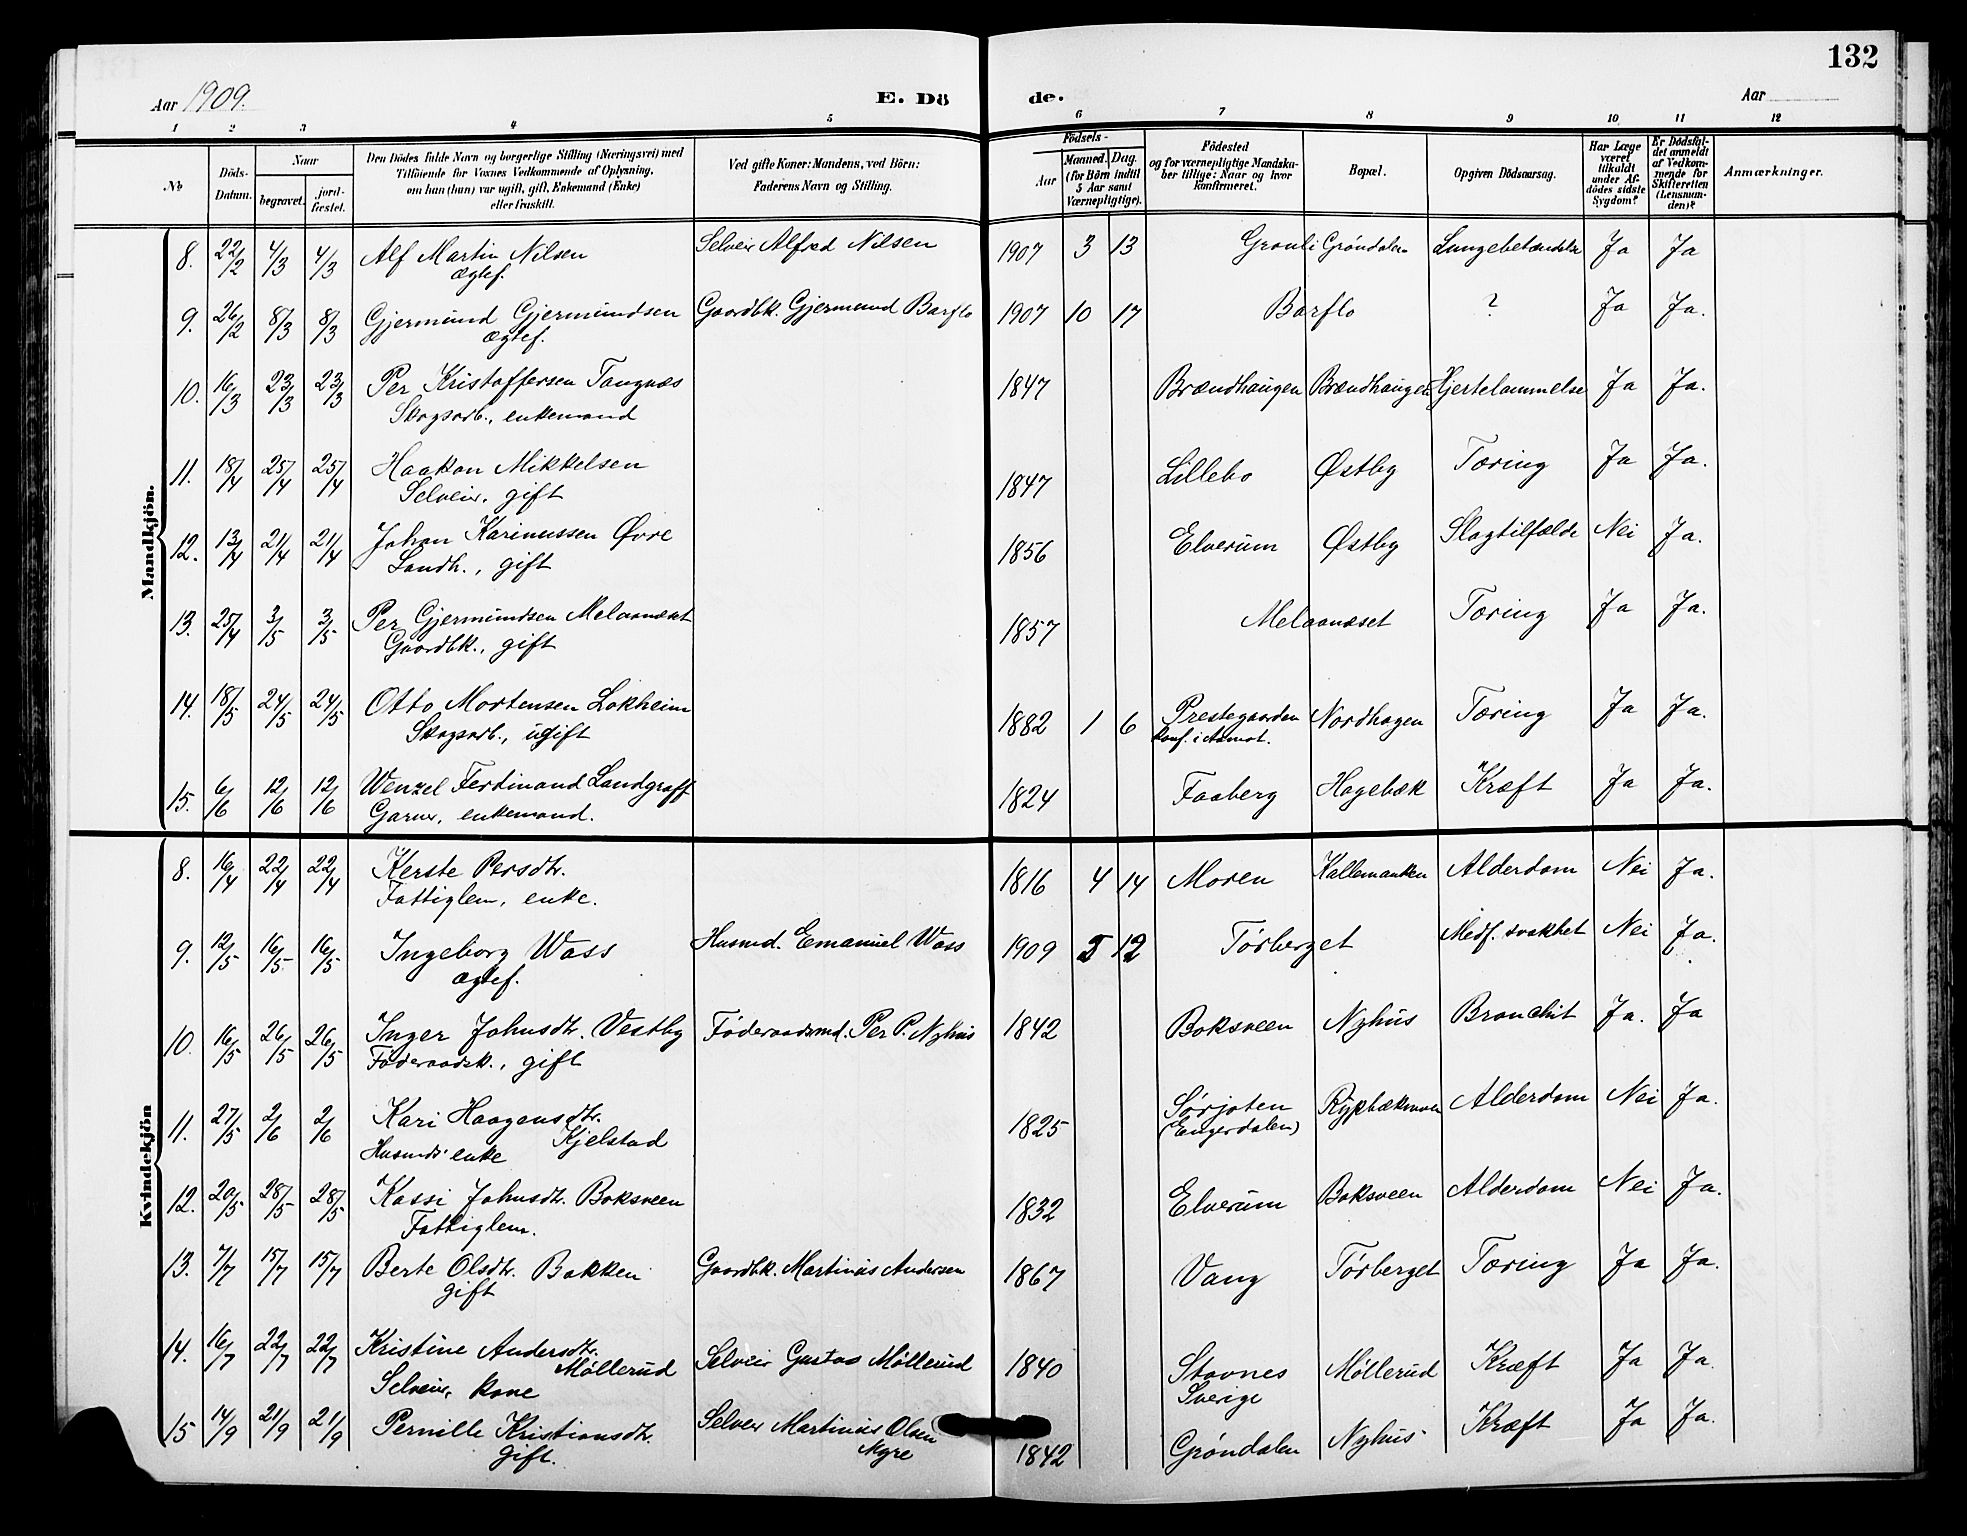 132
Aar 1909.
E. Dö de.
Aar
1 2 3 4 5 6 7 8 9 10 11 12
No
Döds-Datum.
Naar
begravet.
jordfæstet.
Den Dödes fulde Navn og borgerlige Stilling (Næringsvei) med
Tilföiende for Voxnes Vedkommende af Oplysning,
om han (hun) var ugift, gift, Enkemand (Enke)
eller fraskilt.
Ved gifte Koner: Mandens, ved Börn:
Faderens Navn og Stilling.
Födsels-
Aar
Maaned. Dag.
(for Börn indtil
5 Aar samt
Værnepligtige).
Födested
og for værnepligtige Mandska-
ber tillige: Naar og hvor
konfirmeret.
Bopæl.
Opgiven Dödsaarsag.
Har Læge
været
tilkaldt
under Af-
dödes sidste
Sygdom?
Er Dödsfal-
det anmeldt
af Vedkom-
mende for
Skifteretten
(Lensman-
den)?
Anmærkninger.
Mandkjön.
8. 22/2 4/3 4/3 Alf Martin Nilsen Selveir Alfred Nilsen 1907 3 13 Gronli Grøndalen Lungebetændelse Ja Ja
ægtef.
9. 26/2 8/3 8/3 Gjermund Gjermundsen Gaardbk. Gjermund Barflo 1907 10 17 Barflo ? Ja Ja.
ægtef.
10. 16/3 23/3 23/3 Per Kristoffersen Tangnæs 1847 Brændhaugen Brændhaugen Hjertelammelse Ja Ja.
Skogsarb., enkemand
11. 18/4 25/4 25/4 Haakon Mikkelsen 1847 Lillebo Østby Tæring Ja Ja.
Selveier, gift
12. 13/4 21/4 21/4 Johan Karinussen Øvre 1856 Elverum Østby Slagtilfælde Nei Ja.
Landh., gift
13. 25/4 3/5 3/5 Per Gjermundsen Melaanæset 1857 Melaanæset Tæring Ja Ja.
Gaardbk., gift
14. 18/5 24/5 24/5 Otto Mortensen Lokheim 1882 1 6 Prestegaarden Nordhagen Tæring Ja Ja.
Skogsarb., ugift konf. i Aamot.
15. 6/6 12/6 12/6 Wenzel Ferdinand Landgraff 1824 Faaberg Hagebæk Kræft Ja Ja.
Garver, enkemand.
Kvindekjön
8. 16/4 22/4 22/4 Kerste Persdtr. 1816 4 14 Moren Kallemanken Alderdom Nei Ja.
Fattiglem, enke.
9. 12/5 16/5 16/5 Ingeborg Wass Husmd. Emanuel Wass 1909 5 12 Tørberget Medf. svakhet Nei Ja.
ægtef.
10. 16/5 26/5 26/5 Inger Johnsdtr. Vestby Føderaadsmd. Per P. Nyhus 1842 Boksveen Nyhus Bronchit Ja. Ja
Føderaadsk., gift
11. 27/5 2/6 2/6 Kari Haagensdtr. 1825 Sørjoten Alderdom Nei Ja.
Kjelstad (Engerdalen)
Husmds enke
12. 20/5 28/5 28/5 Kassi Johnsdtr. Boksveen 1832 Elverum Boksveen Alderdom Nei Ja.
Fattiglem.
13. 7/7 15/7 15/7 Berte Olsdtr. Bakken Gaardbk. Martinus Andersen 1867 Vang Tørberget Tæring Ja Ja.
gift
14. 16/7 22/7 22/7 Kristine Andersdtr. Selveir Gustav Møllerud 1840 Stavnes Møllerud Kræft Ja Ja.
Møllerud Sverige
Selveier kone
15 14/9 21/9 21/9 Pernille Kristiansdtr. Selveir Martinus Olsen 1842 Grøndalen Nyhus Kræft Ja Ja.
gift. Myre